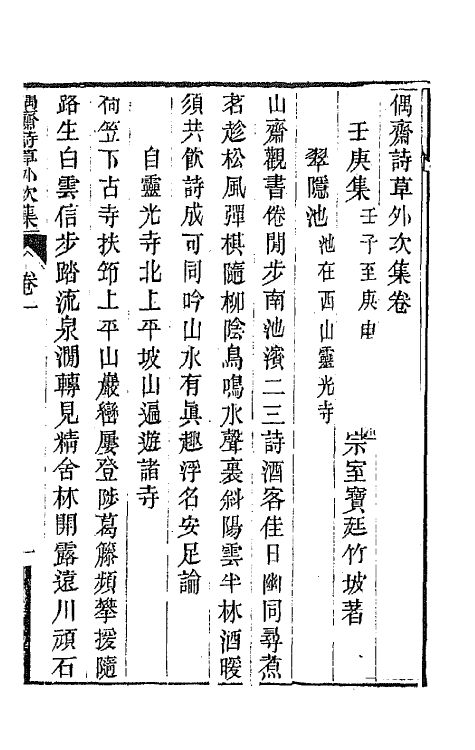 偶齋詩草外次集卷
壬庚集 壬子至庚申
宗室寶廷竹坡著
翠隱池 池在西山靈光寺
山齋觀書倦閒步南池濱二三詩酒客佳日幽同尋煮
茗趁松風彈棋隨柳陰鳥鳴水聲裏斜陽雲半林酒暖
須共飲詩成可同吟山水有眞趣浮名安足論
自靈光寺北上平坡山遍遊諸寺
荷笠下古寺扶筇上平山巖巒屢登陟葛籐頻攀援隨
路生白雲信步踏流泉澗轉見精舍林開露遠川頑石
偶齋詩草外次集 卷一 一